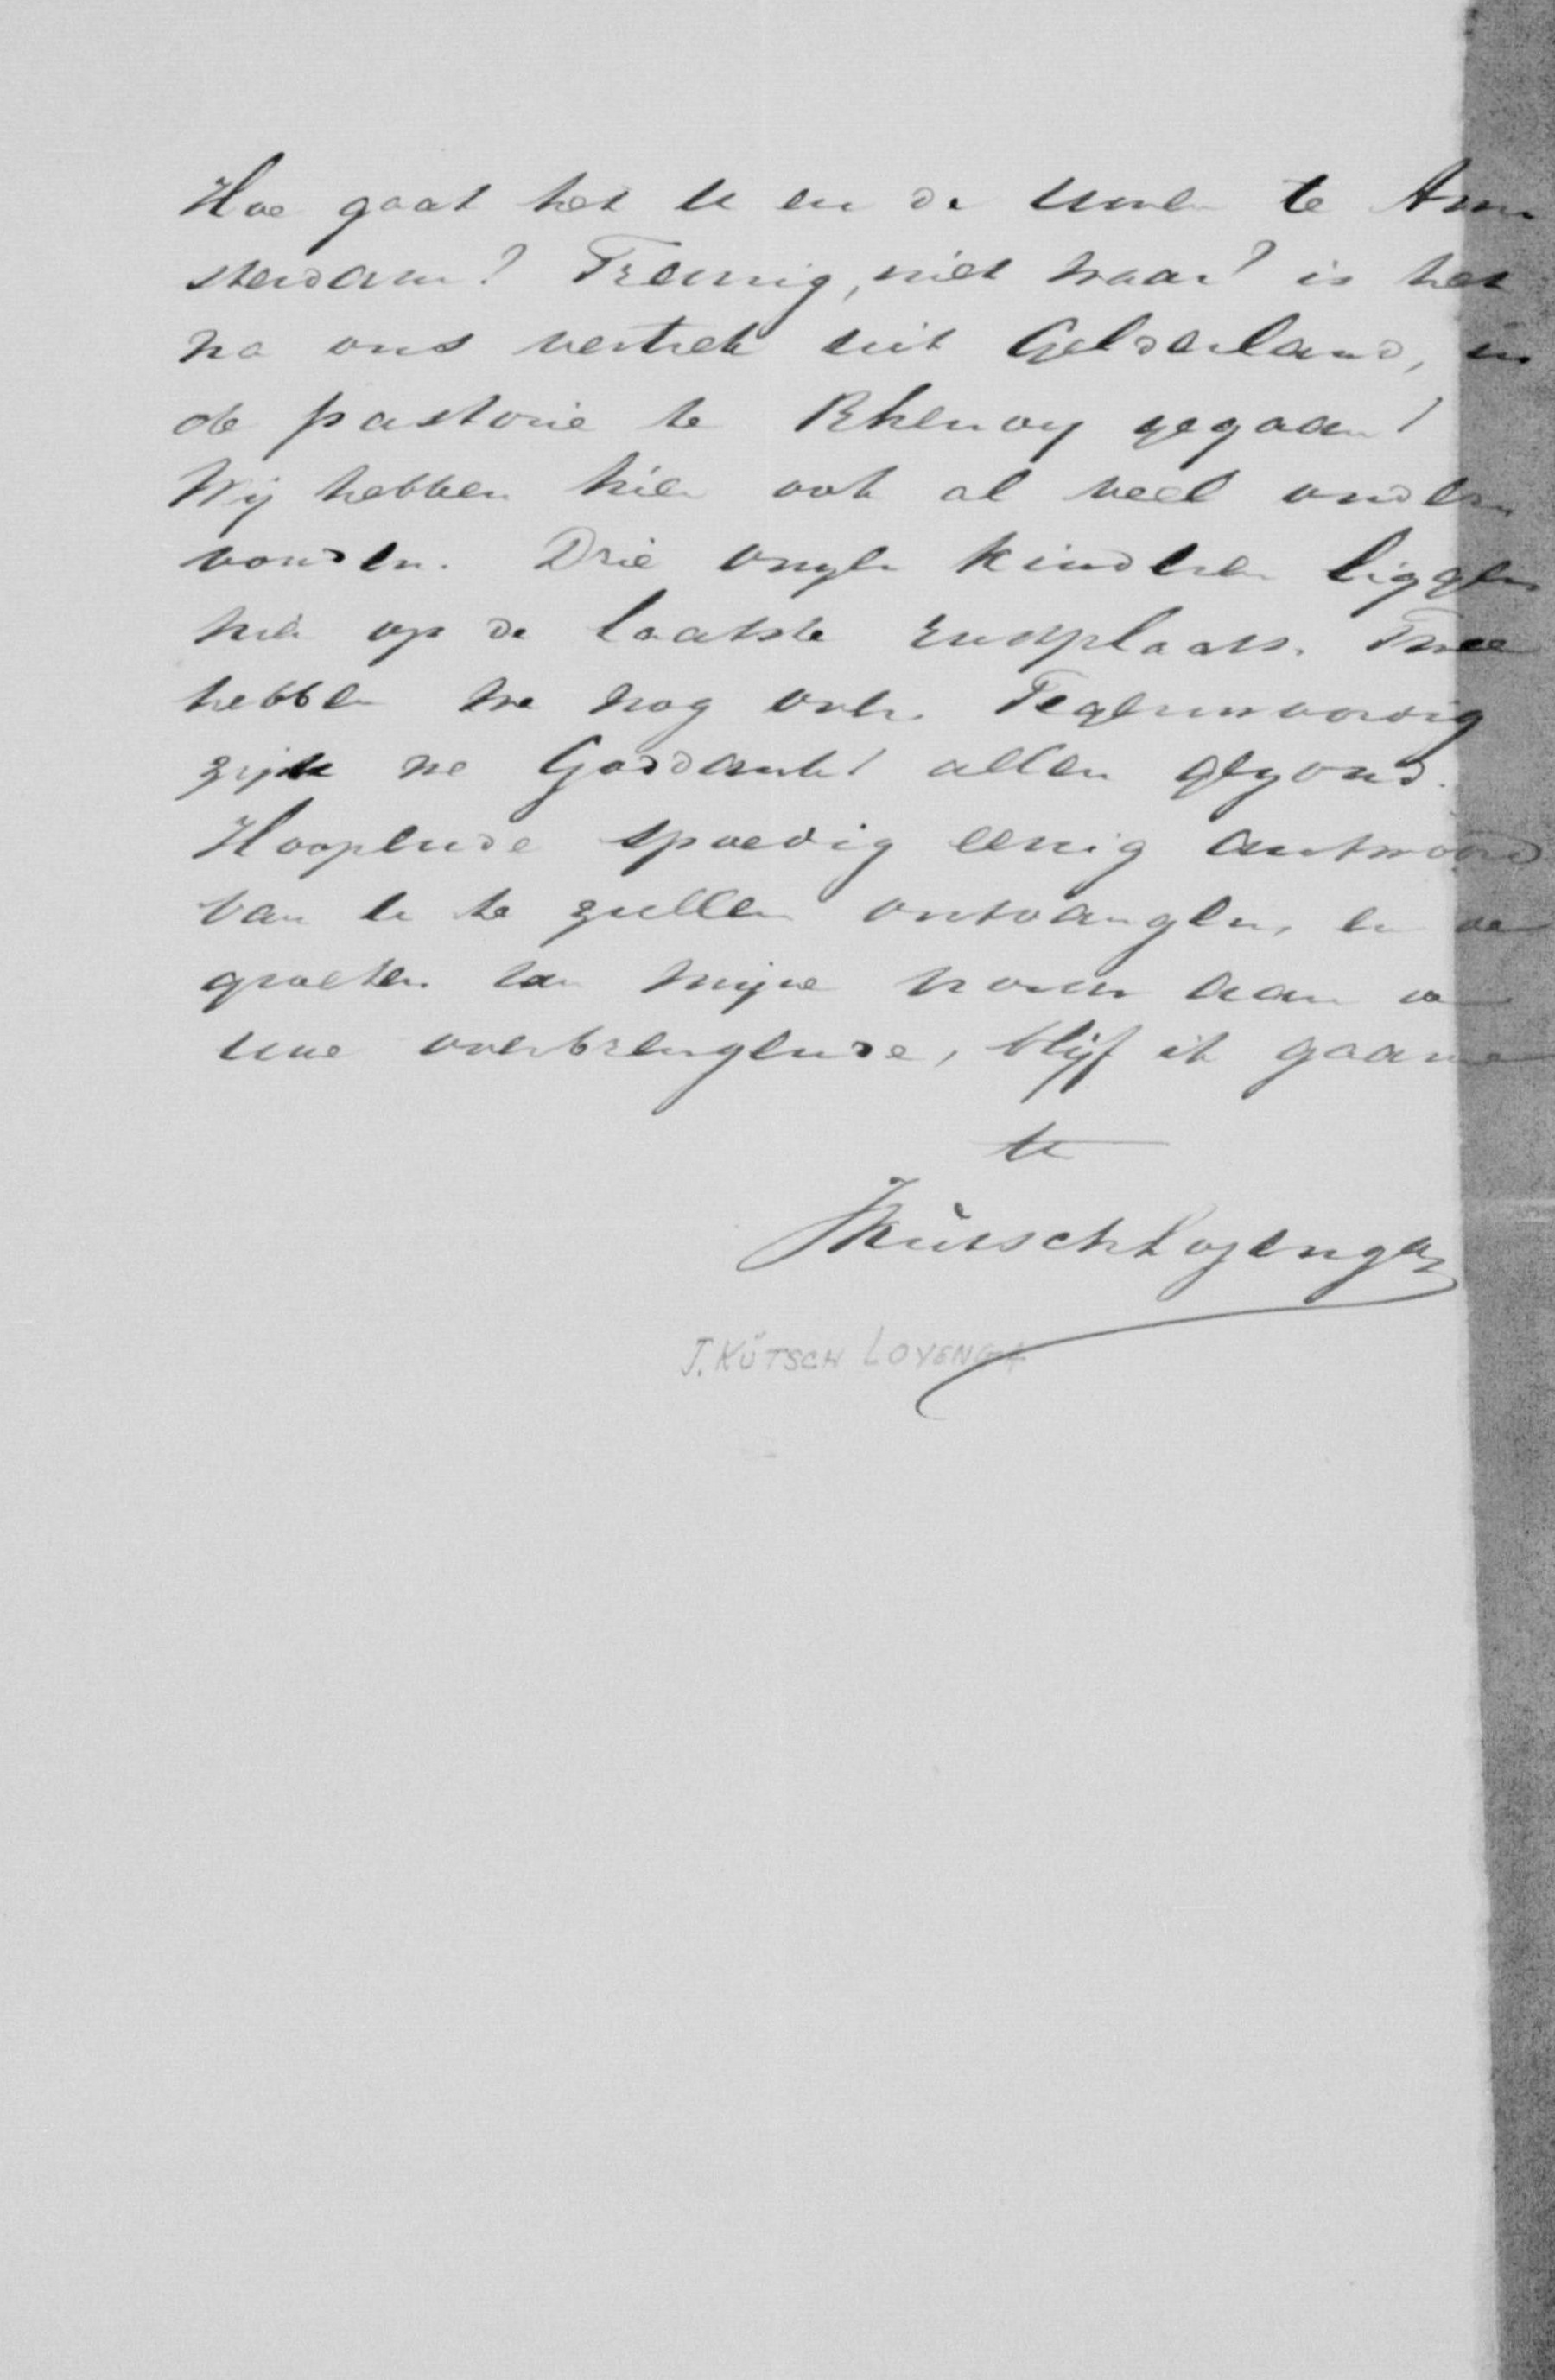 Hoe gaat het U en de Uwen te Am
sterdam? Treurig, niet waar? is het
na ons vertrek uit Gelderland, in
de pastorie te Rhenoy gegaan!
Wij hebben hier ook al veel onder
vonden. Drie onzer kinderen liggen
hier op de laatste rustplaats. Twee
hebben we nog over. Tegenwoordig
zijn we Goddank! allen gezond.
Hoopende spoedig eenig antwoord
van U te zullen ontvangen, en de
groeten van mijne vrouw aan de
Uwe overbrengende, blijf ik gaarne
JKütschLojenga
J. KÜTSCH LOYENGA